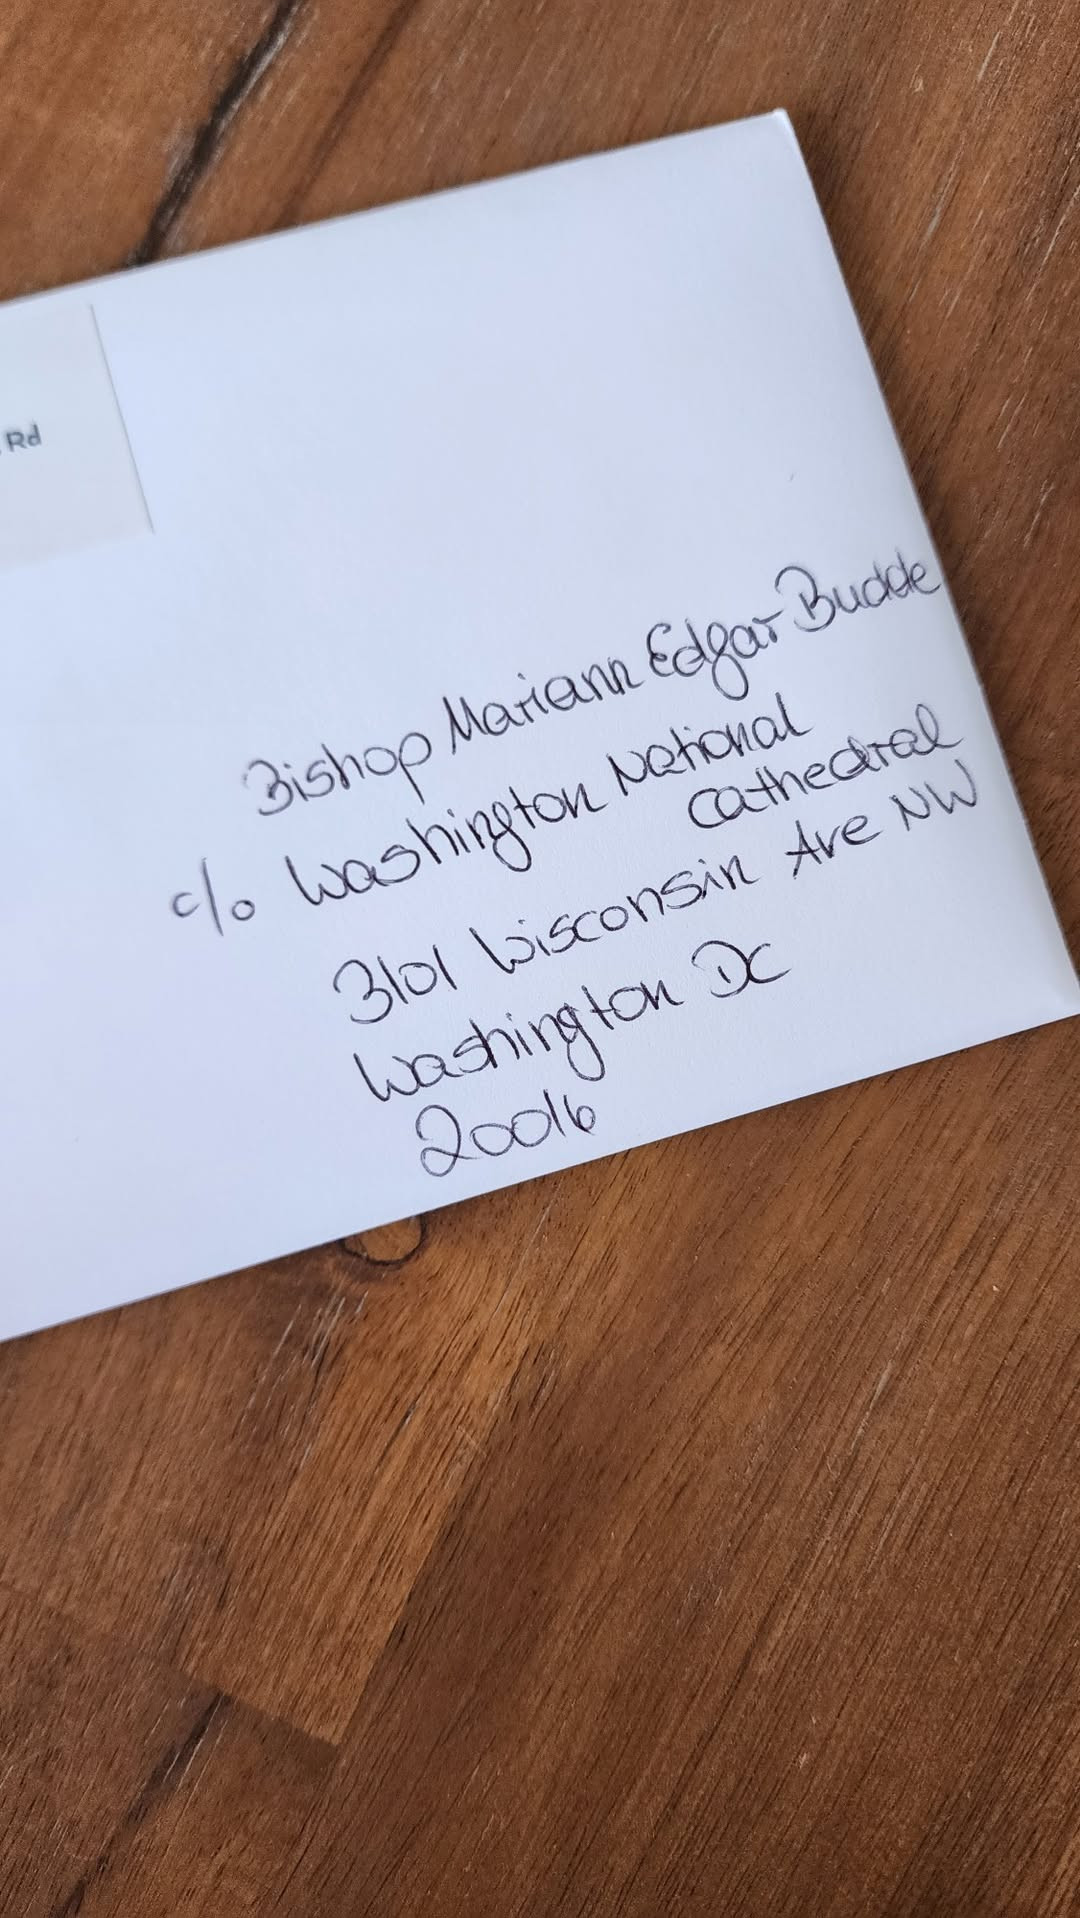 Rd
Bishop Mariann Edgar Budde
c/o Washington National
Cathedral
3101 Wisconsin Ave NW
Washington DC
20016